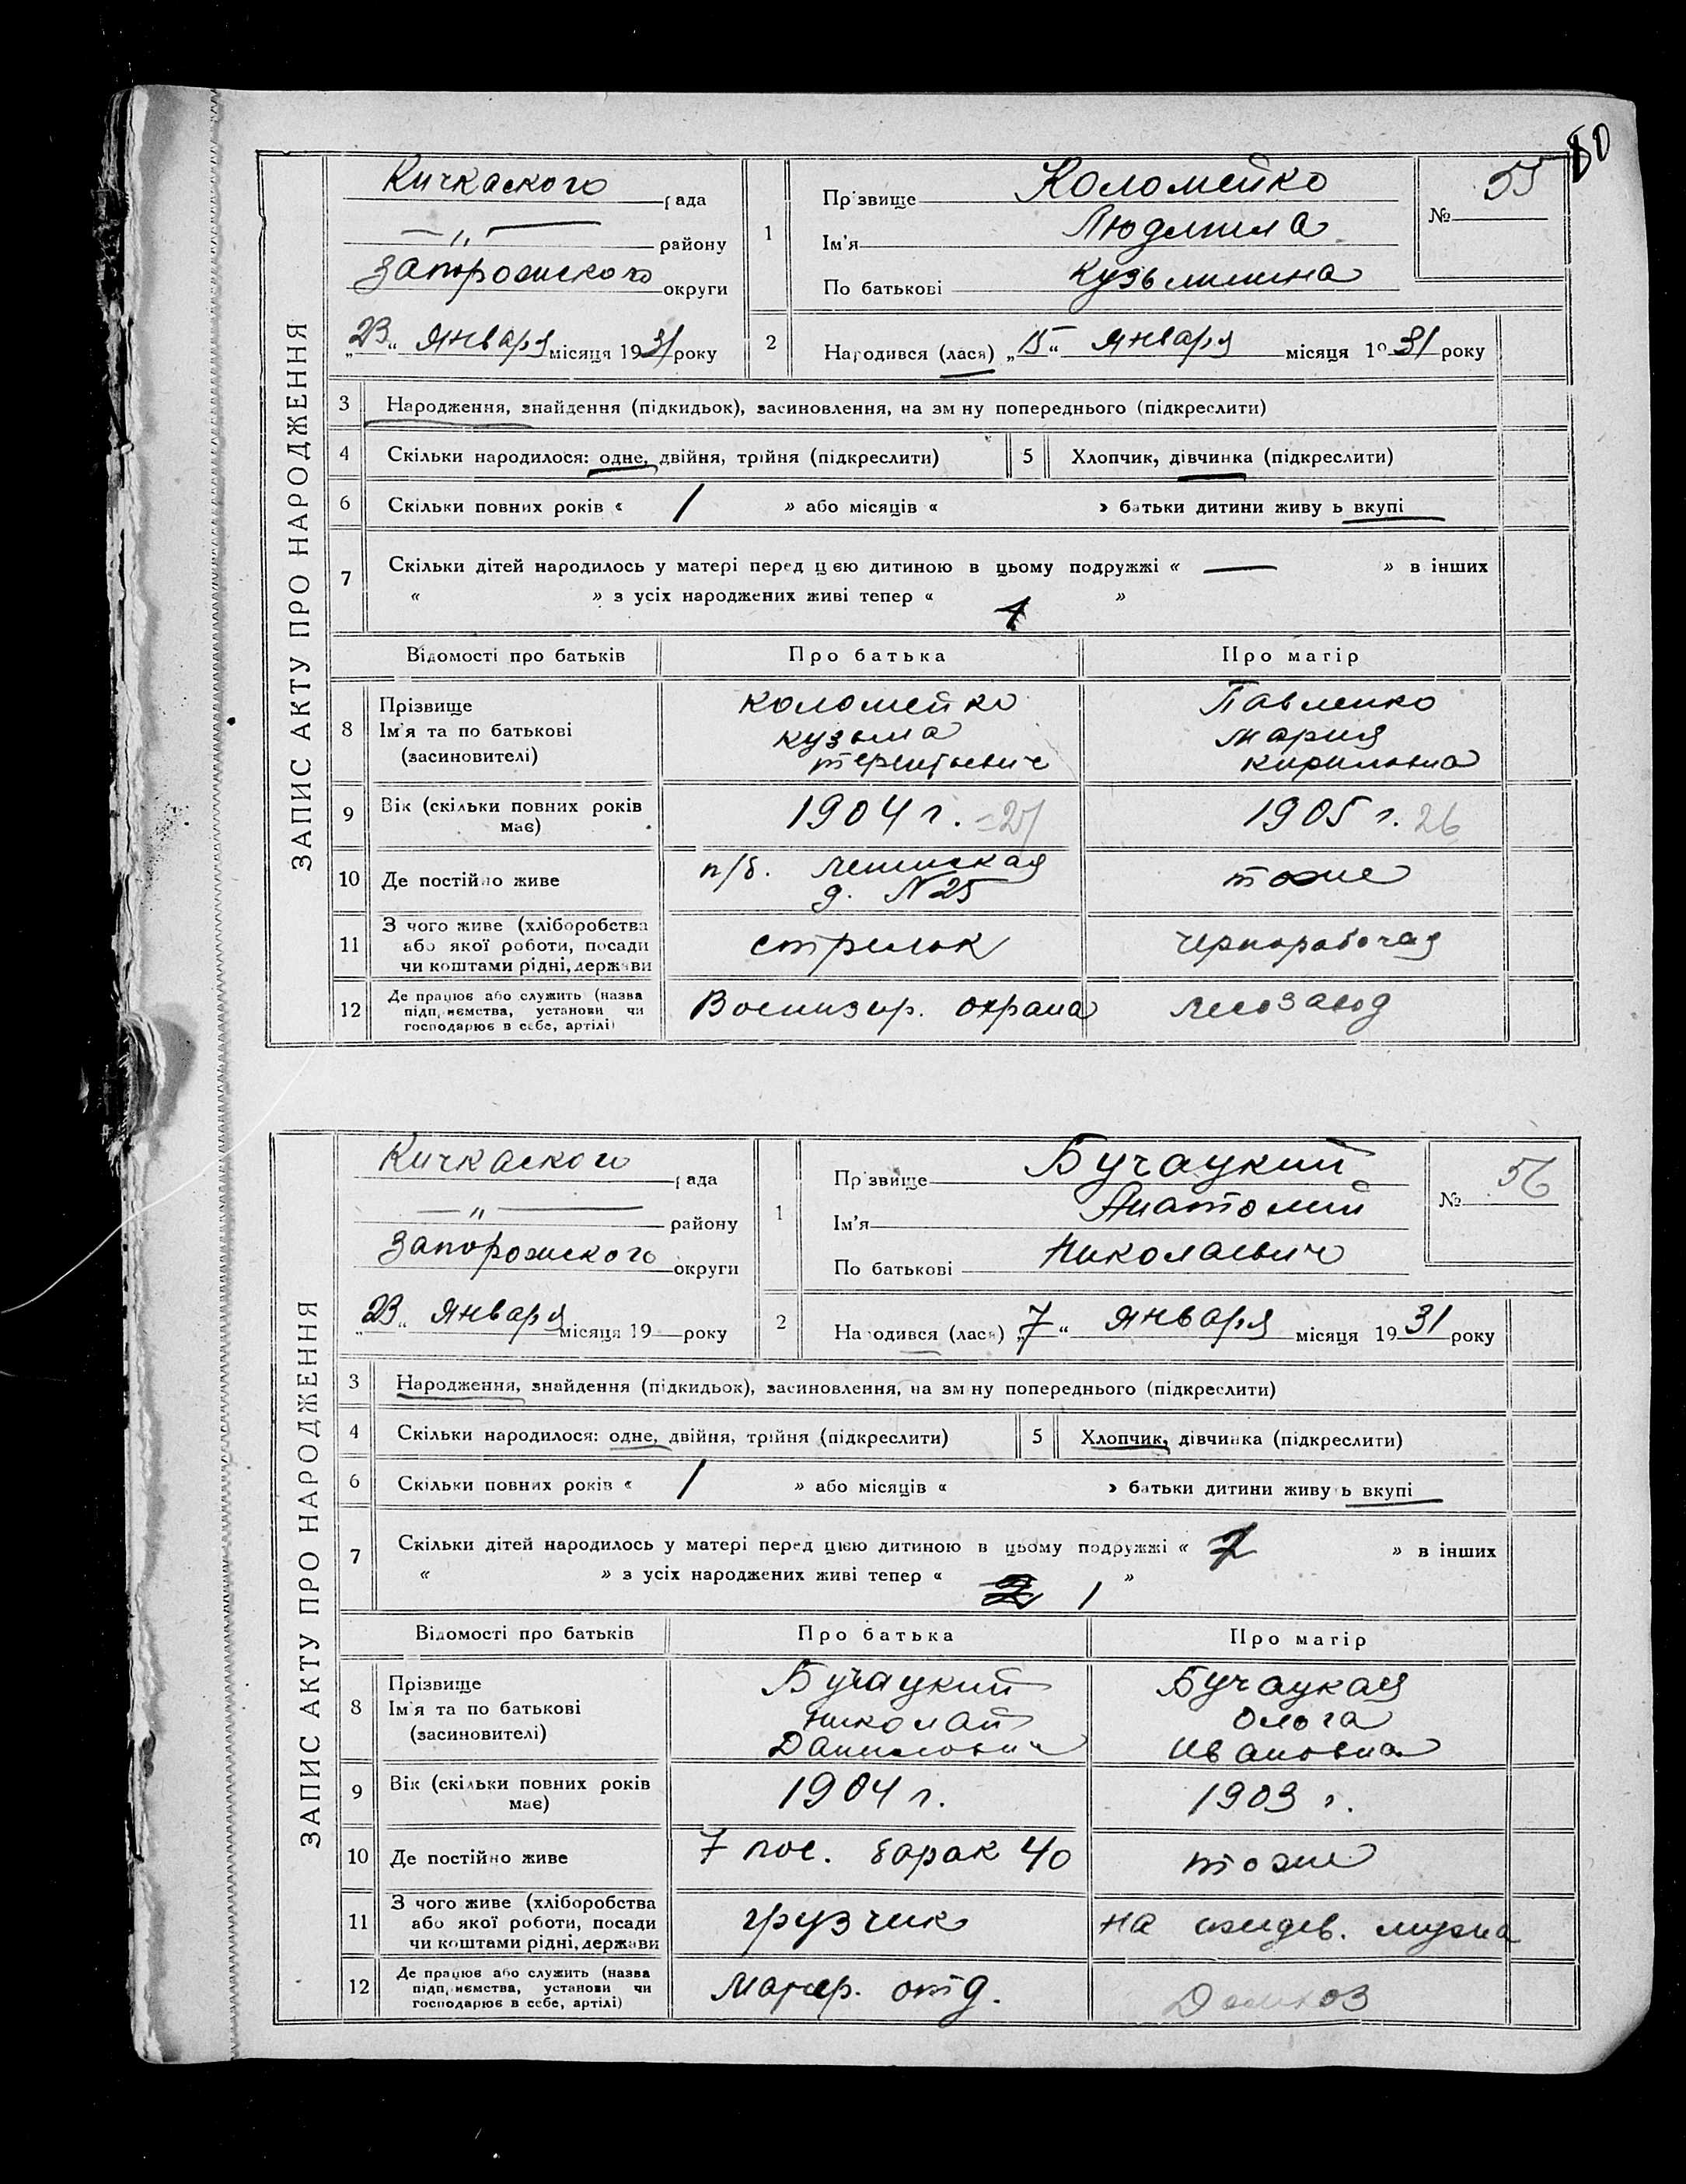 80
ЗАПИС АКТУ ПРО НАРОДЖЕННЯ
Кичкаского рада
— „ — району
Запорожского округи
„23“ Января місяця 1931 року
1
Прізвище Коломейко
Ім'я Людмила
По батькові Кузьминична
№ 55
2 Народився (лася) „15“ Января місяця 1931 року
3 Народження, знайдення (підкидьок), засиновлення, на зміну попереднього (підкреслити)
4 Скільки народилося: одне, двійня, трійня (підкреслити) 5 Хлопчик, дівчинка (підкреслити)
6 Скільки повних років « 1 » або місяців « » батьки дитини живуть вкупі
7 Скільки дітей народилось у матері перед цією дитиною в цьому подружжі « — » в інших
« » з усіх народжених живі тепер « 1 »
Відомості про батьків Про батька Про матір
8 Прізвище Ім'я та по батькові (засиновителі)
Коломейко Кузьма Терентьевич
Павленко Мария Кириловна
9 Вік (скільки повних років має) 1904 г. =27 1905 г. 26
10 Де постійно живе п/б. Ленинская д. N 25 тоже
11 З чого живе (хліборобства або якої роботи, посади чи коштами рідні, держави стрелок чернорабочая
12 Де працює або служить (назва підприємства, установи чи господарює в себе, артілі) Военизир. охрана лесозавод
ЗАПИС АКТУ ПРО НАРОДЖЕННЯ
Кичкаского рада
— „ — району
Запорожского округи
„23“ Января місяця 19 року
1
Прізвище Бучацкий
Ім'я Анатолий
По батькові Николаевич
№ 56
2 Народився (лася) „7“ Января місяця 1931 року
3 Народження, знайдення (підкидьок), засиновлення, на зміну попереднього (підкреслити)
4 Скільки народилося: одне, двійня, трійня (підкреслити) 5 Хлопчик, дівчинка (підкреслити)
6 Скільки повних років « 1 » або місяців « » батьки дитини живуть вкупі
7 Скільки дітей народилось у матері перед цією дитиною в цьому подружжі « » в інших
« » з усіх народжених живі тепер « 1 »
Відомості про батьків Про батька Про матір
8 Прізвище Ім'я та по батькові (засиновителі)
Бучацкий Николай Данилович
Бучацкая Ольга Ивановна
9 Вік (скільки повних років має) 1904 г. 1903 г.
10 Де постійно живе 7 пос. барак 40 тоже
11 З чого живе (хліборобства або якої роботи, посади чи коштами рідні, держави грузчик на иждев. мужа
12 Де працює або служить (назва підприємства, установи чи господарює в себе, артілі) Матер. отд. Домхоз